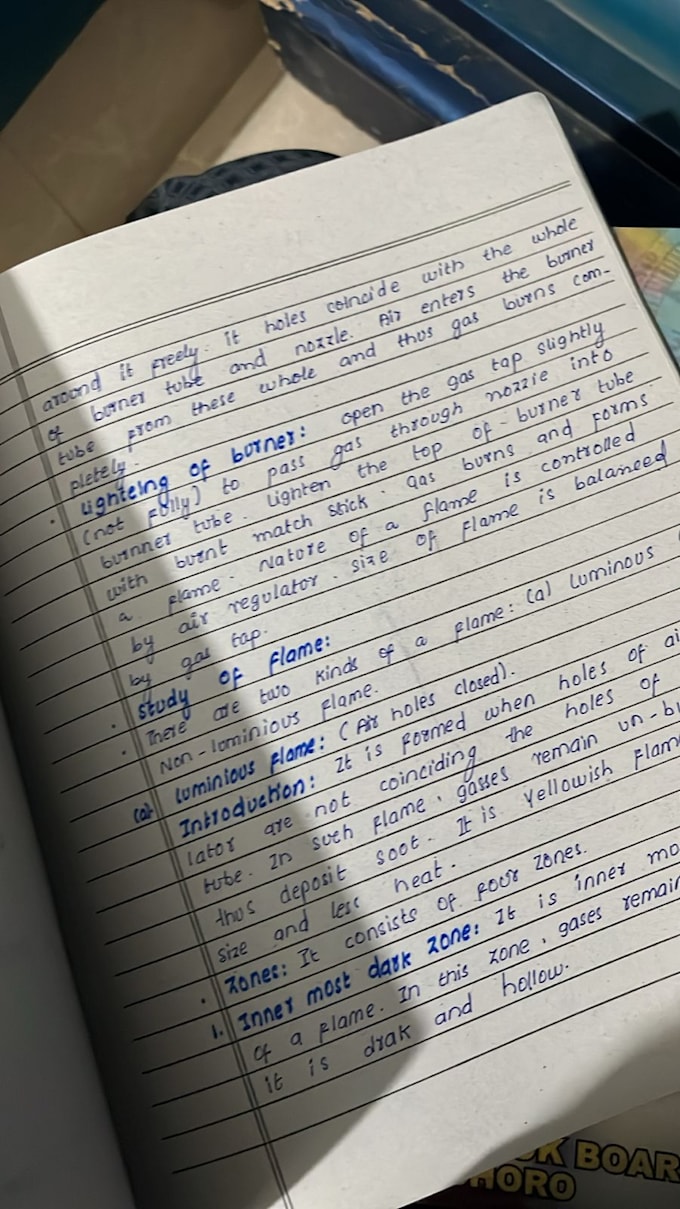 around it freely. it holes coincide with the whole
of burner tube and nozzle. Air enters the burner
tube from these whole and thus gas burns com-
pletely.
• Lighteing of burner: open the gas tap slightly
(not fully) to pass gas through nozzie into
burnner tube. Lighten the top of - burner tube
with burnt match stick. gas burns and forms
a flame. Nature of a flame is controlled
by air regulator. size of flame is balanced
by gas tap.
• Study of flame:
• There are two kinds of a flame: (a) Luminous
Non-lominious flame.
(a) Luminious flame: (Air holes closed).
Introduction: It is formed when holes of ai
lator are not coinciding the holes of
tube. In such flame, gasses remain un-bu
thus deposit soot. It is yellowish flam
size and less heat.
• Zones: It consists of four zones.
1. Inner most dark zone: It is inner mo
of a flame. In this zone, gases remain
it is drak and hollow.
K BOAR
HORO